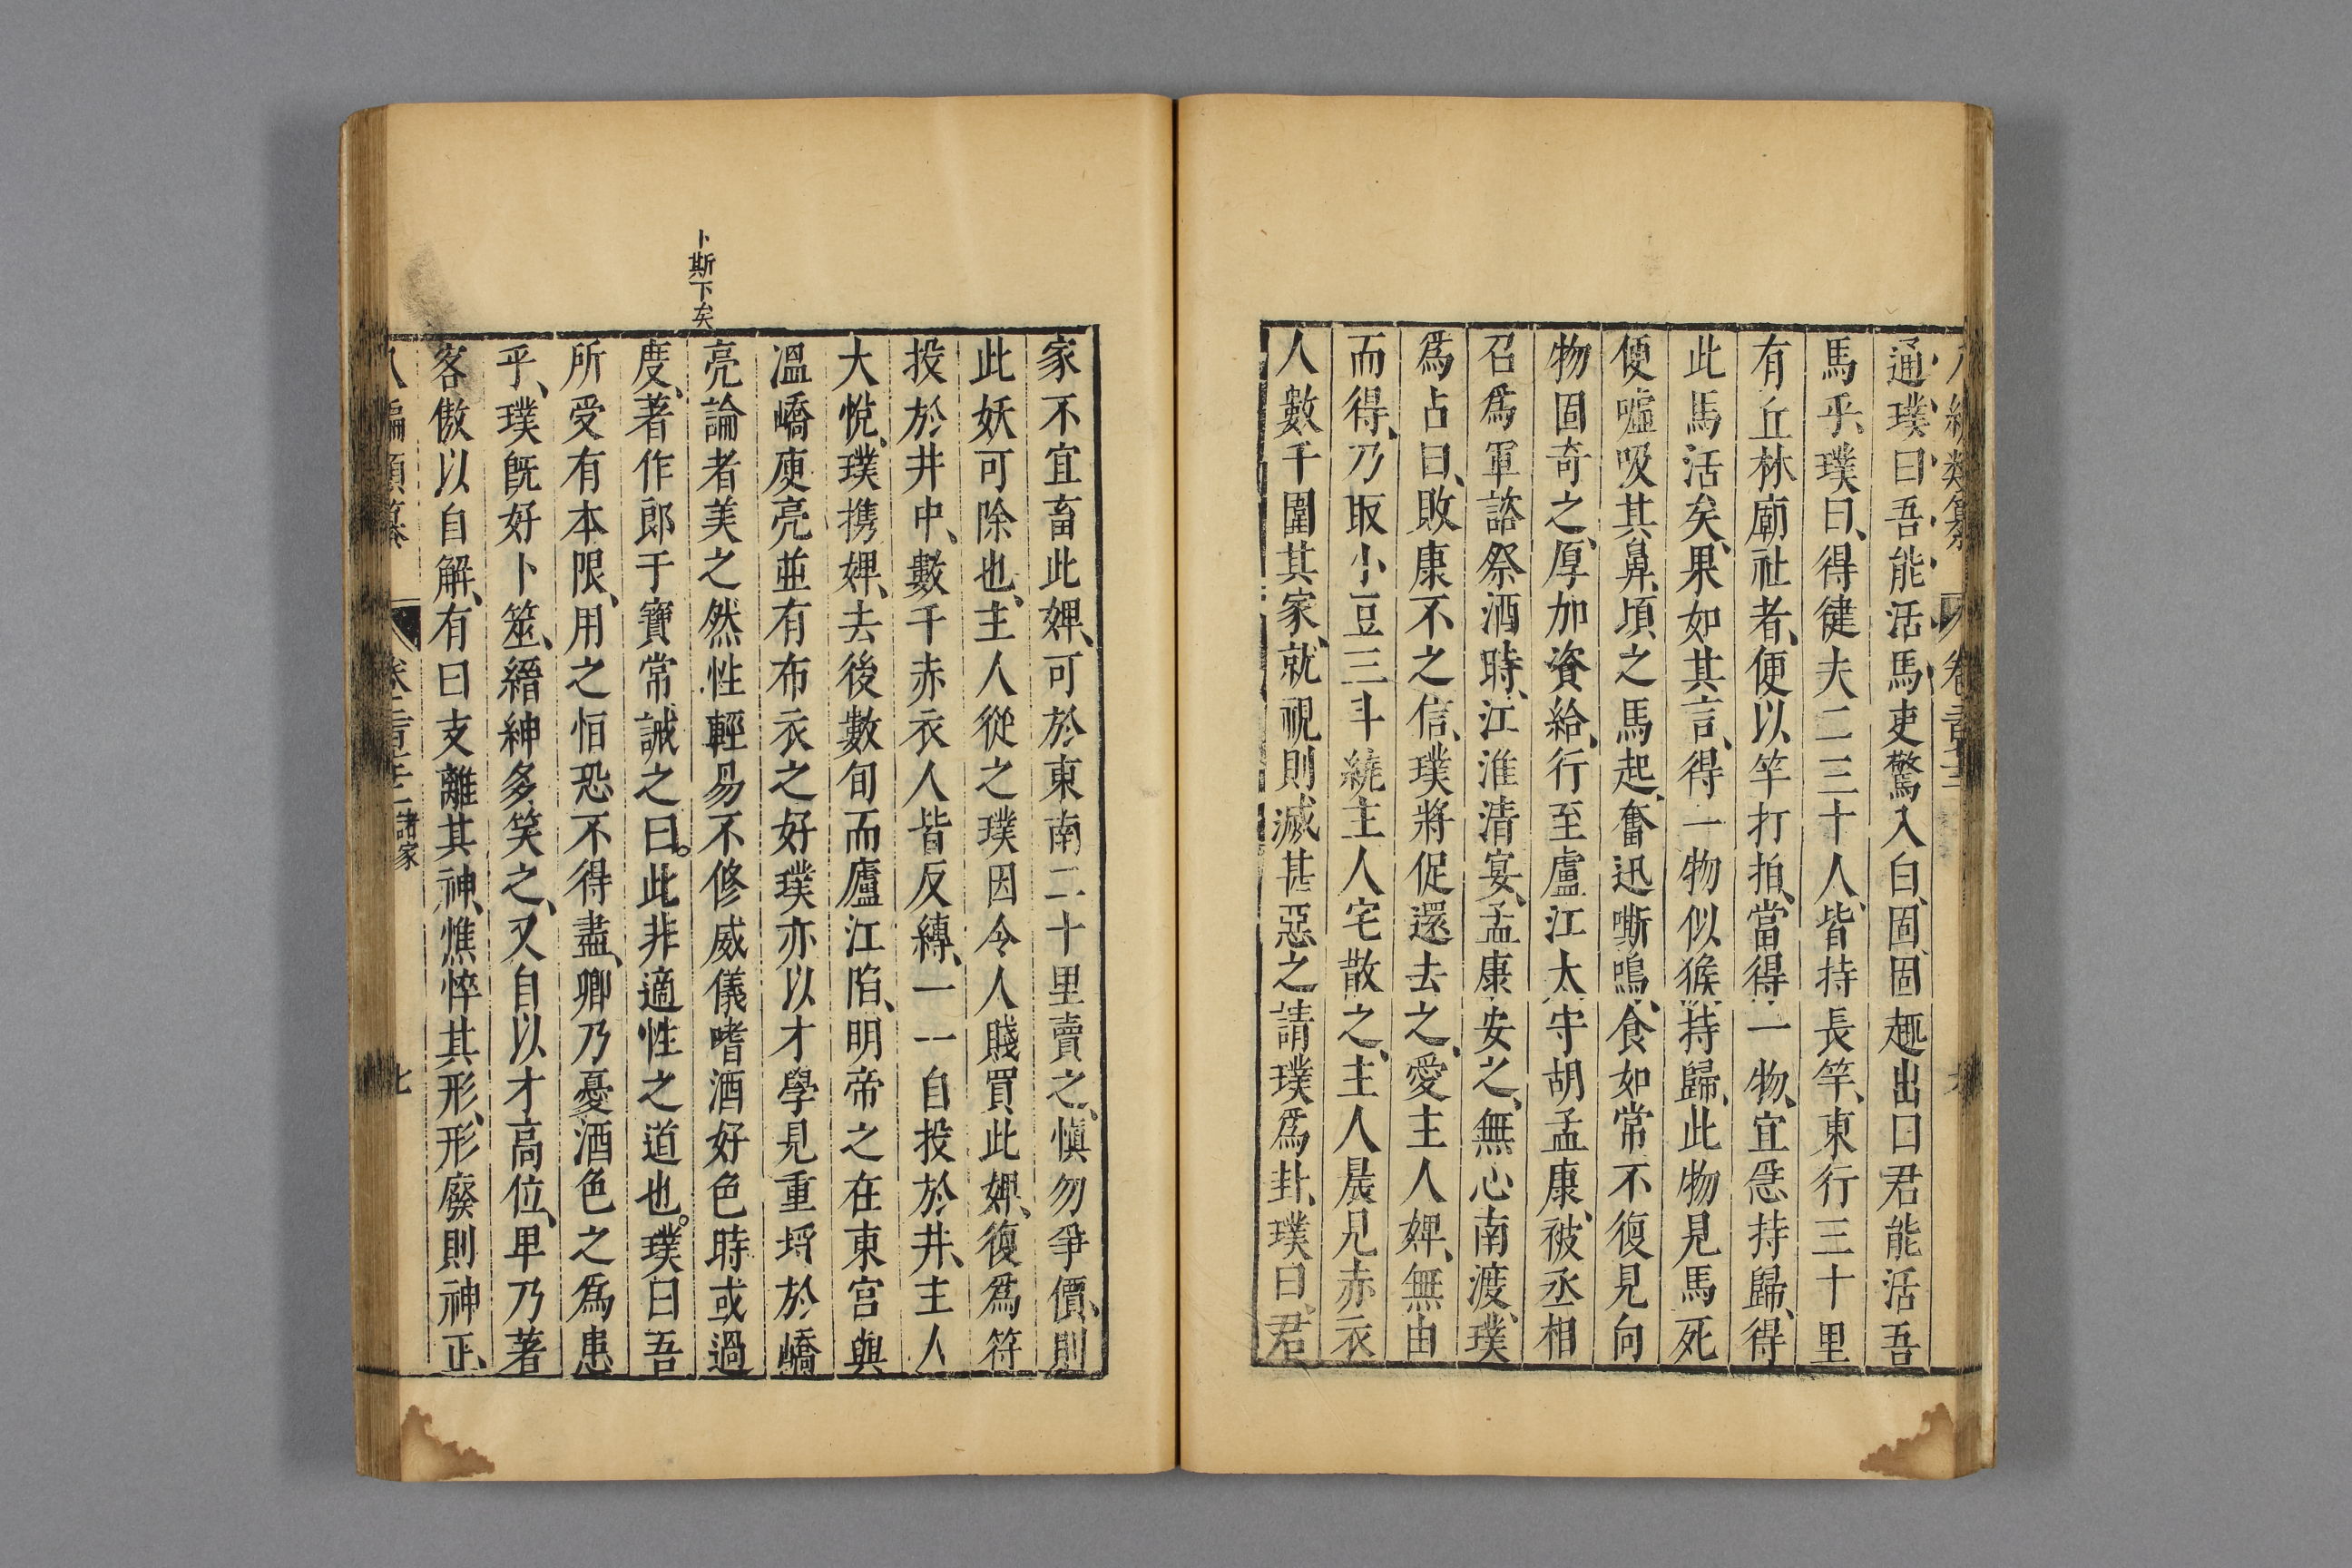 通璞曰吾能活馬吏驚入白固固趣出曰君能活吾
馬乎璞曰得健夫二三十人皆持長竿東行三十里
有丘林廟社者便以竿打拍當得一物宜急持歸得
此馬活矣果如其言得一物似猴持歸此物見馬死
便噓吸其鼻頃之馬起奮迅嘶鳴食如常不復見向
物固奇之厚加資給行至廬江太守胡孟康被丞相
召爲軍諮祭酒時江淮清宴孟康安之無心南渡璞
爲占曰敗康不之信璞將促還去之愛主人婢無由
而得乃取小豆三斗繞主人宅散之主人晨見赤衣
人數千圍其家就視則滅甚惡之請璞爲卦璞曰君
家不宜畜此婢可於東南二十里賣之愼勿爭價則
此妖可除也主人從之璞因令人賤買此婢復爲符
投於井中數千赤衣人皆反縛一一自投於井主人
大悅璞携婢去後數旬而廬江陷明帝之在東宮與
溫嶠庾亮並有布衣之好璞亦以才學見重埒於嶠
卜斯下矣
亮論者美之然性輕易不修威儀嗜酒好色時或過
度著作郎于寶常誡之曰此非適性之道也璞曰吾
所受有本限用之恒恐不得盡卿乃憂酒色之爲患
乎璞旣好卜筮縉紳多笑之又自以才高位卑乃著
客傲以自解有曰支離其神憔悴其形形廢則神正
諸家